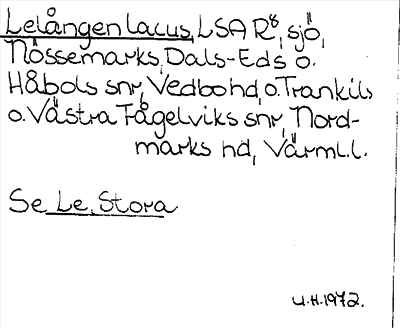 Lelången lacus, LSA R⁸, sjö,
Nössemarks, Dals-Eds o.
Håbols snr, Vedbo hd, o. Trankils
o. Västra Fågelviks snr, Nord-
marks hd, Värml.l.
Se Le, Stora
U.H.1972.